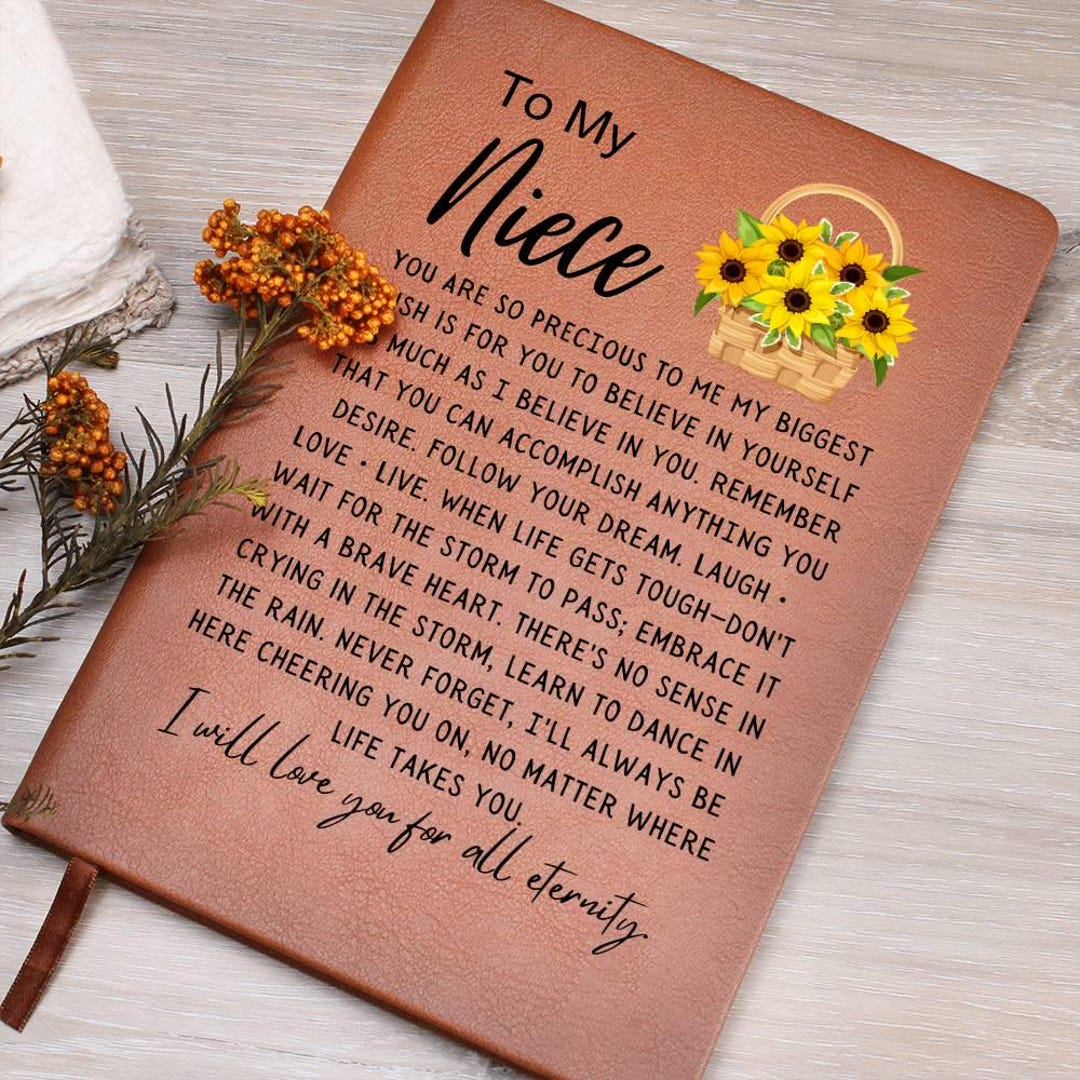 To My
Niece
YOU ARE SO PRECIOUS TO ME MY BIGGEST
IS FOR YOU TO BELIEVE IN YOURSELF
MUCH AS I BELIEVE IN YOU. REMEMBER
THAT YOU CAN ACCOMPLISH ANYTHING YOU
DESIRE. FOLLOW YOUR DREAM. LAUGH •
LOVE • LIVE. WHEN LIFE GETS TOUGH—DON'T
WAIT FOR THE STORM TO PASS; EMBRACE IT
WITH A BRAVE HEART. THERE'S NO SENSE IN
CRYING IN THE STORM, LEARN TO DANCE IN
THE RAIN. NEVER FORGET, I'LL ALWAYS BE
HERE CHEERING YOU ON, NO MATTER WHERE
LIFE TAKES YOU.
I will love you for all eternity.